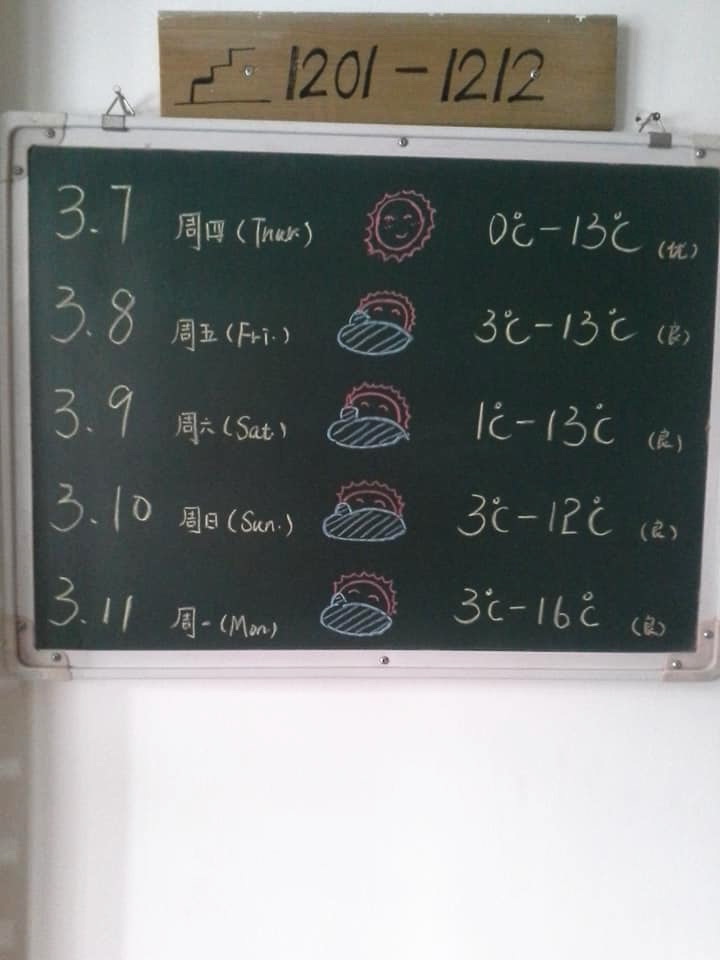 1201-1212
3.7 周四(Thur.) 0℃-13℃ (优)
3.8 周五(Fri.) 3℃-13℃ (良)
3.9 周六(Sat.) 1℃-13℃ (良)
3.10 周日(Sun.) 3℃-12℃ (良)
3.11 周一(Mon.) 3℃-16℃ (良)